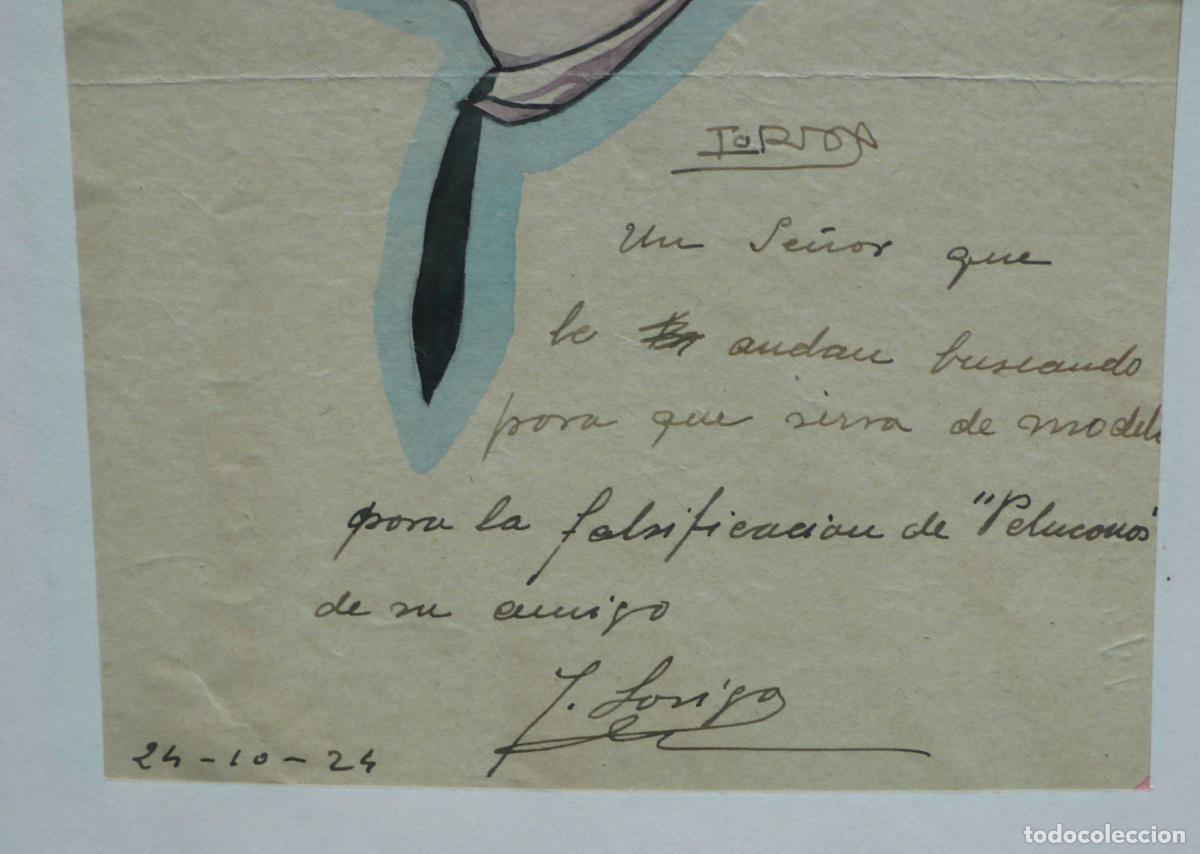 Un Señor que
le andan buscando
para que sirva de modelo
para la falsificacion de "Peluconas"
de su amigo
J. Loriga
24-10-24
todocoleccion